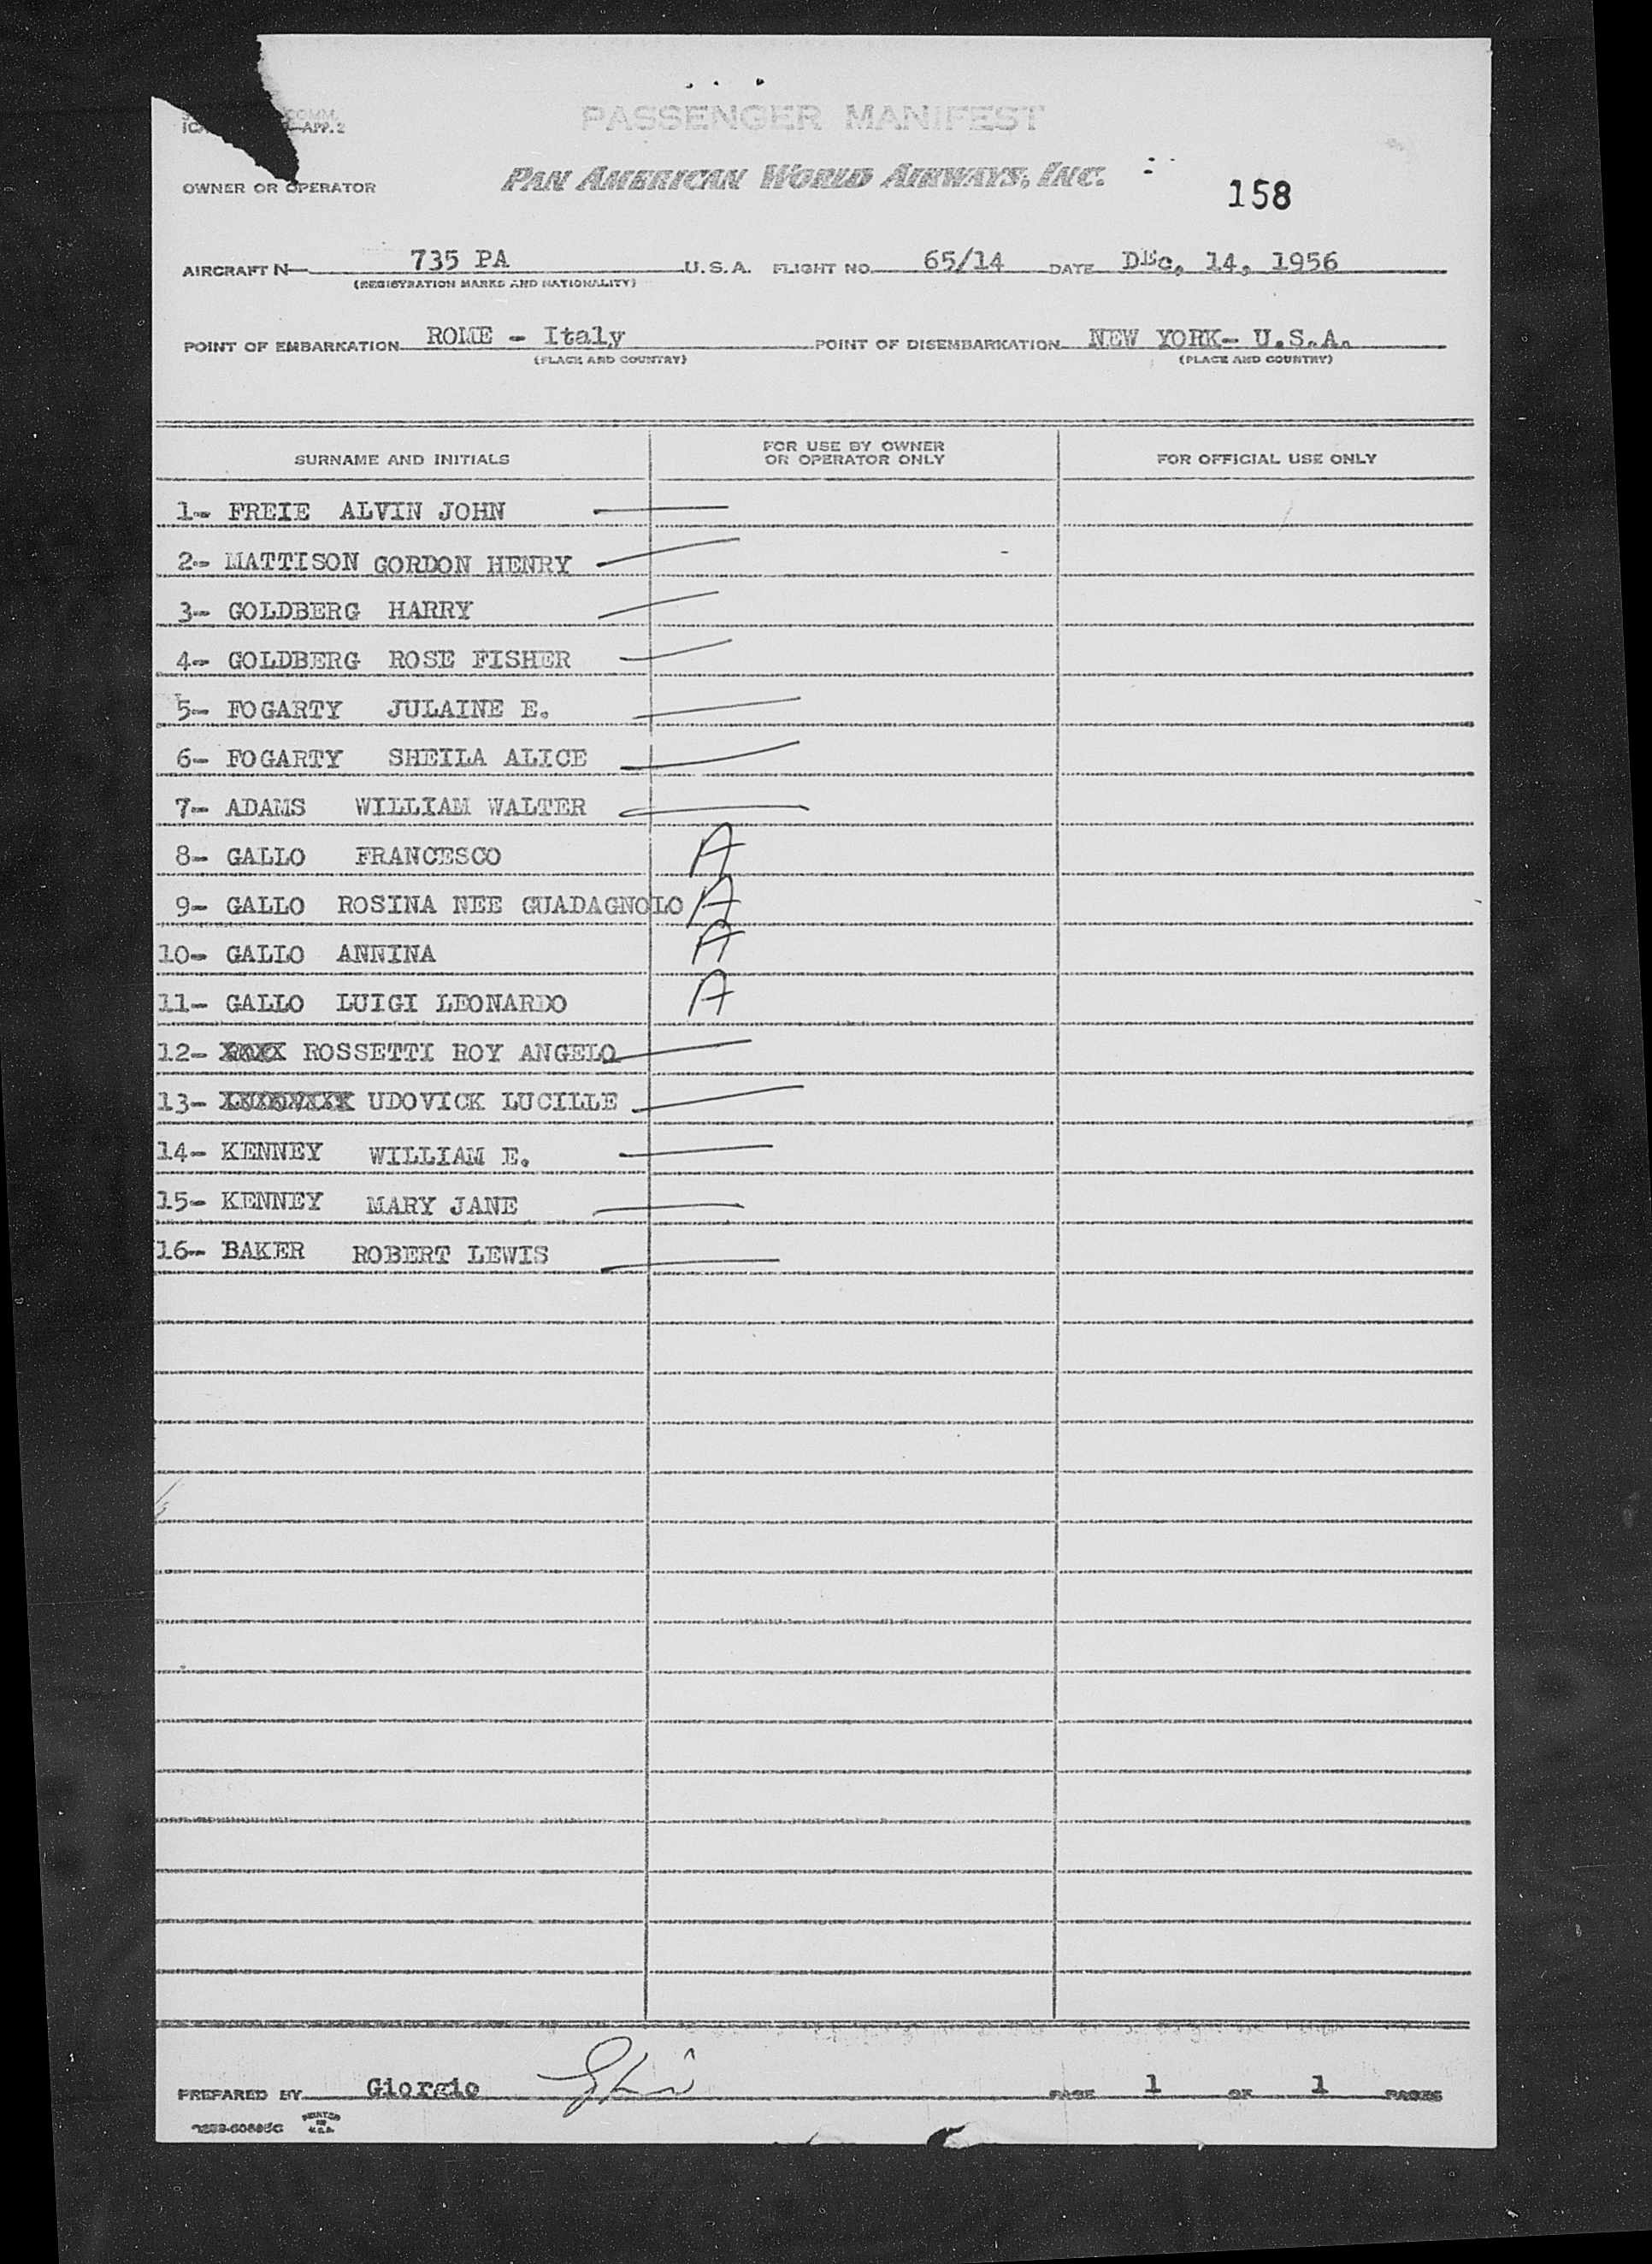 COMM.
APP. 2
PASSENGER MANIFEST
OWNER OR OPERATOR PAN AMERICAN WORLD AIRWAYS, INC.
158
AIRCRAFT N 735 PA U.S.A. FLIGHT NO. 65/14 DATE DEc, 14, 1956
(REGISTRATION MARKS AND NATIONALITY)
POINT OF EMBARKATION ROME - Italy POINT OF DISEMBARKATION NEW YORK- U.S.A.
(PLACE AND COUNTRY) (PLACE AND COUNTRY)
SURNAME AND INITIALS FOR USE BY OWNER OR OPERATOR ONLY FOR OFFICIAL USE ONLY
1- FREIE ALVIN JOHN
2- MATTISON GORDON HENRY
3- GOLDBERG HARRY
4- GOLDBERG ROSE FISHER
5- FOGARTY JULAINE E.
6- FOGARTY SHEILA ALICE
7- ADAMS WILLIAM WALTER
8- GALLO FRANCESCO A
9- GALLO ROSINA NEE GUADAGNOLO A
10- GALLO ANNINA A
11- GALLO LUIGI LEONARDO A
12- ROSSETTI ROY ANGELO
13- UDOVICK LUCILLE
14- KENNEY WILLIAM E.
15- KENNEY MARY JANE
16- BAKER ROBERT LEWIS
PREPARED BY Giorgio PAGE 1 OF 1 PAGES
PRINTED IN U.S.A.